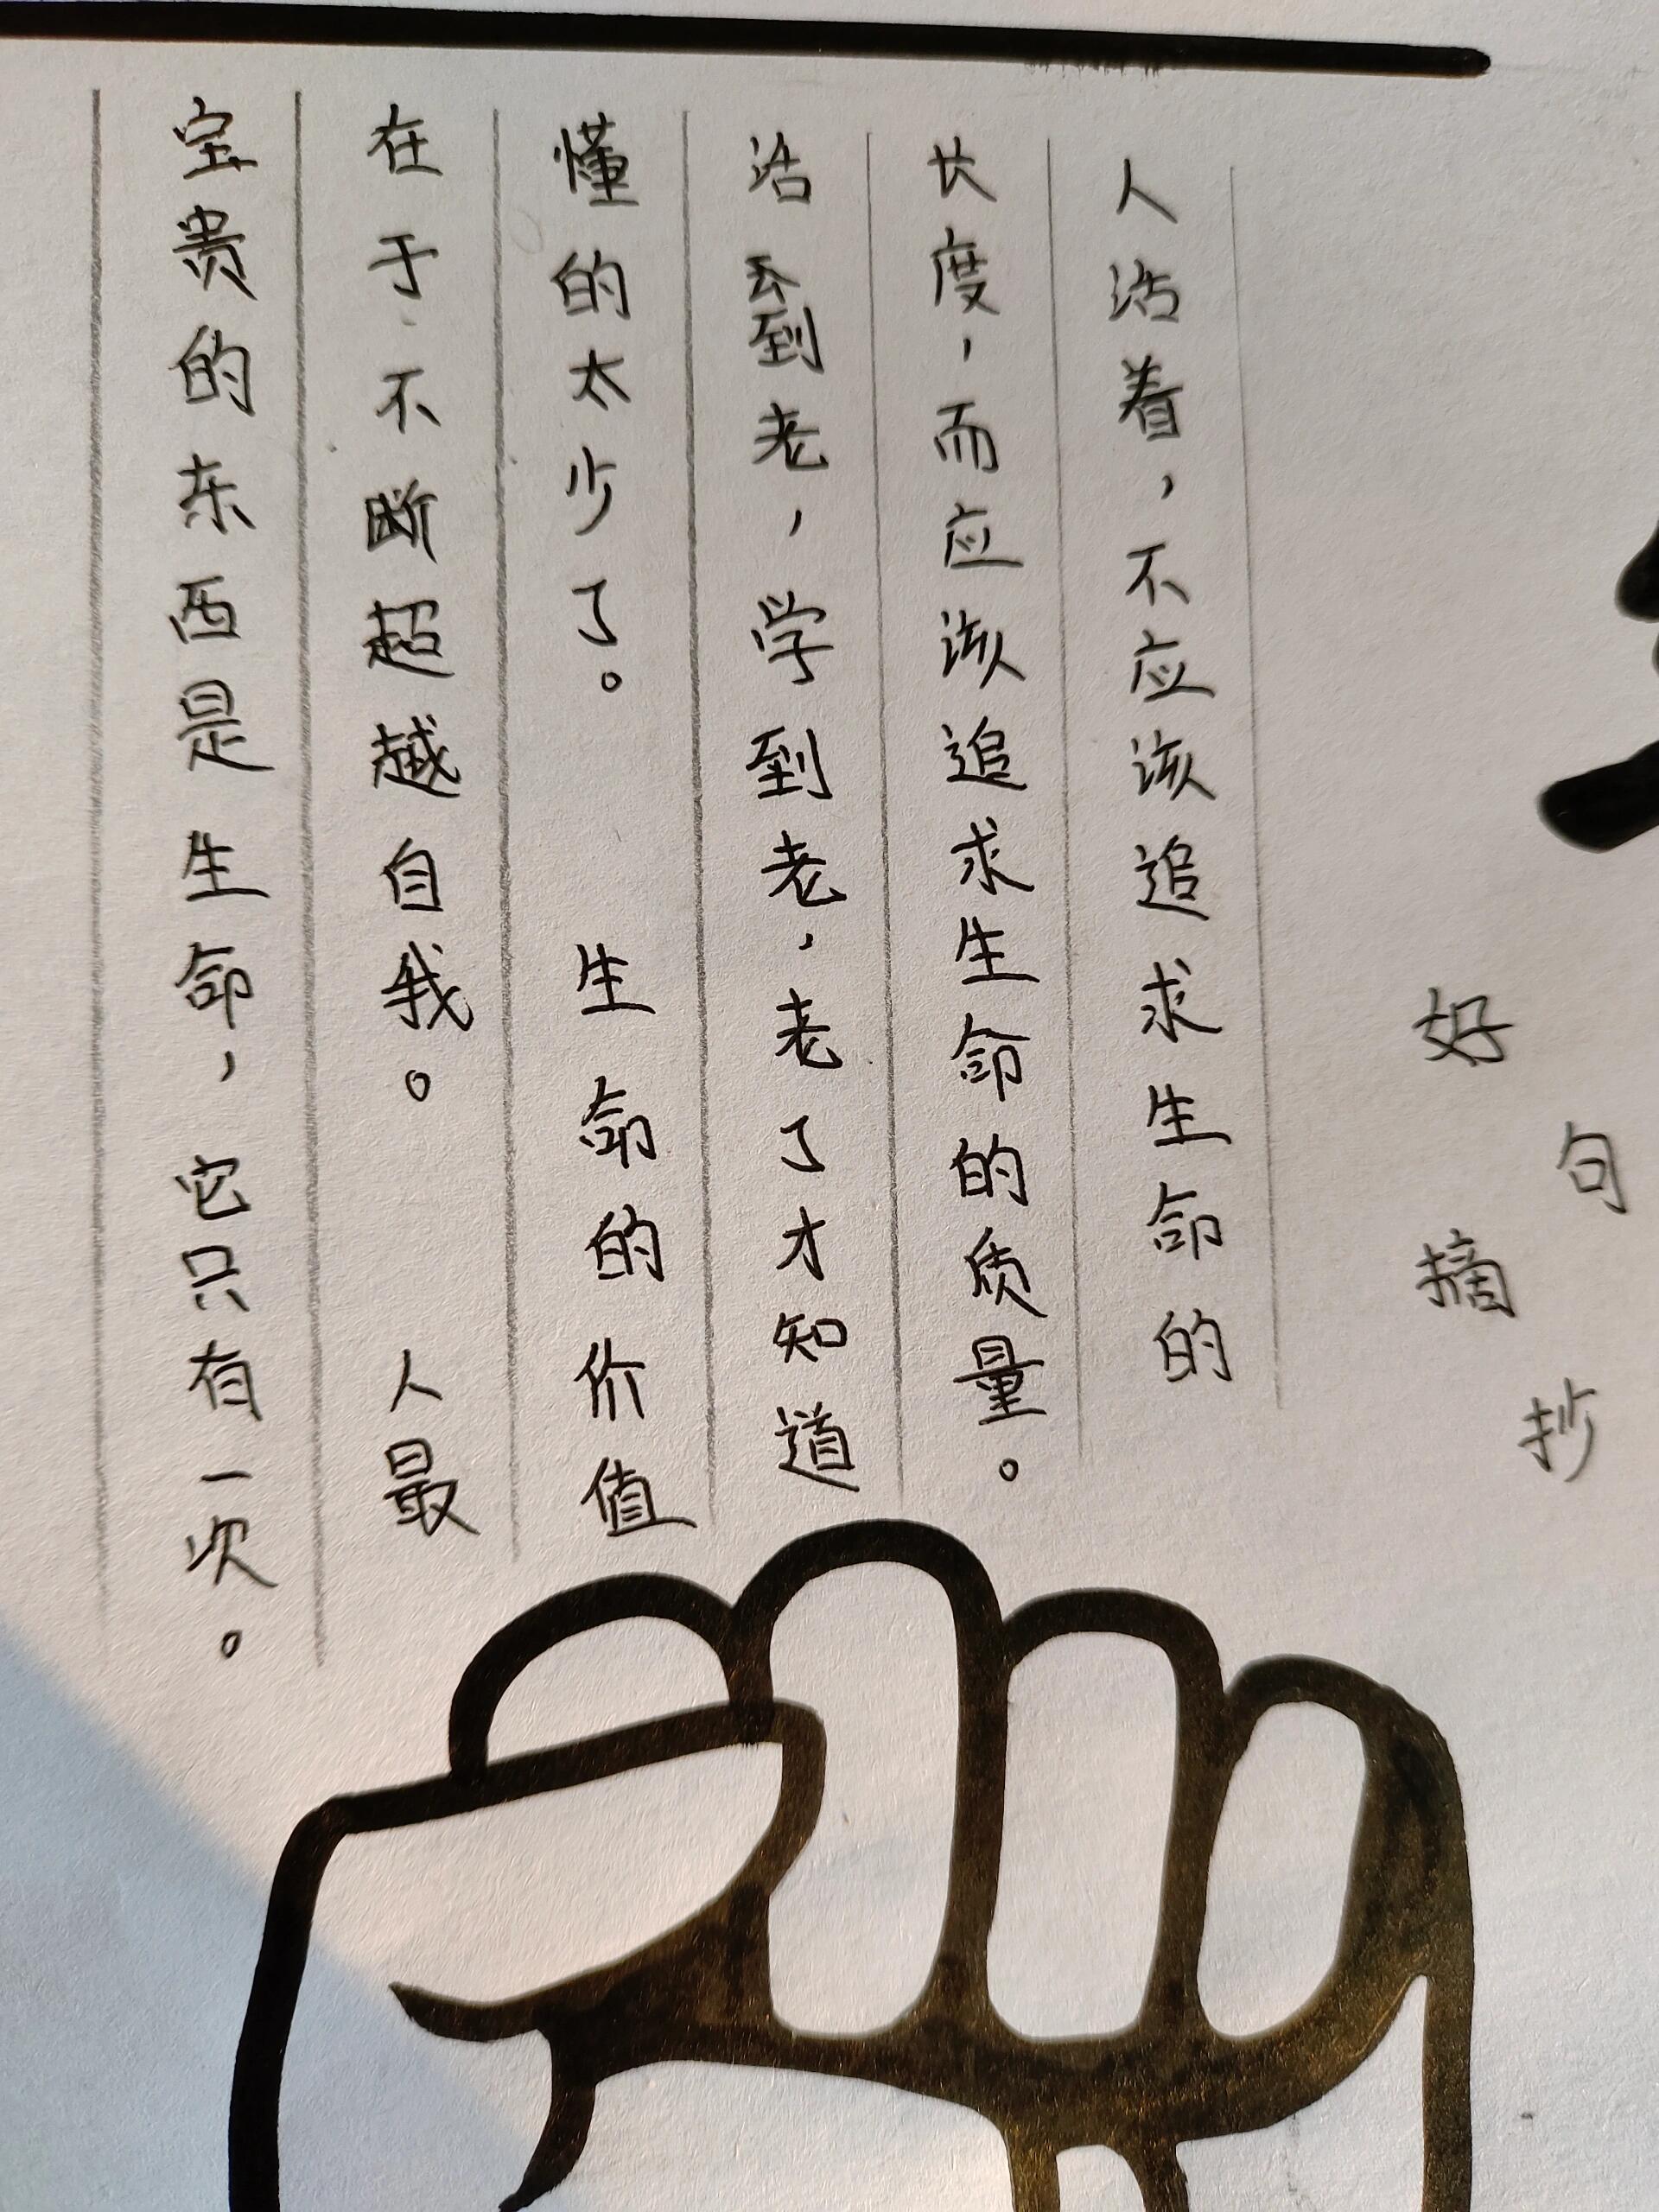 好句摘抄
人活着，不应该追求生命的
长度，而应该追求生命的质量。
活到老，学到老，老了才知道
懂的太少了。 生命的价值
在于不断超越自我。 人最
宝贵的东西是生命，它只有一次。